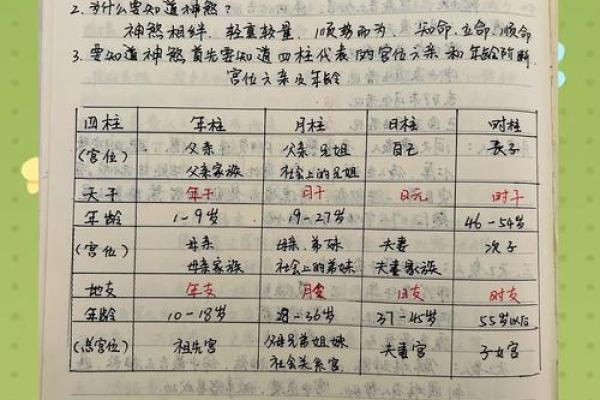 2. 为什么要知道神煞?
神煞相绊、轻重较量、顺势而为、知命、立命、顺命
3. 要知道神煞首先要知道四柱代表的宫位六亲和年龄阶段.
宫位六亲及年龄
四柱 年柱 月柱 日柱 时柱
(宫位) 父亲 父亲.兄姐 自己 长子
父亲家族 社会上的兄姐
天干 年干 月干 日元 时干
年龄 1-9岁 19-27岁 46-54岁
(宫位) 母亲 母亲.弟妹 夫妻 次子
母亲家族 社会上的弟妹 夫妻家族
地支 年支 月支 日支 时支
年龄 10-18岁 28-36岁 37-45岁 55岁以后
(总宫位) 祖先宫 父母兄弟姐妹 夫妻宫 子女宫
社会关系宫